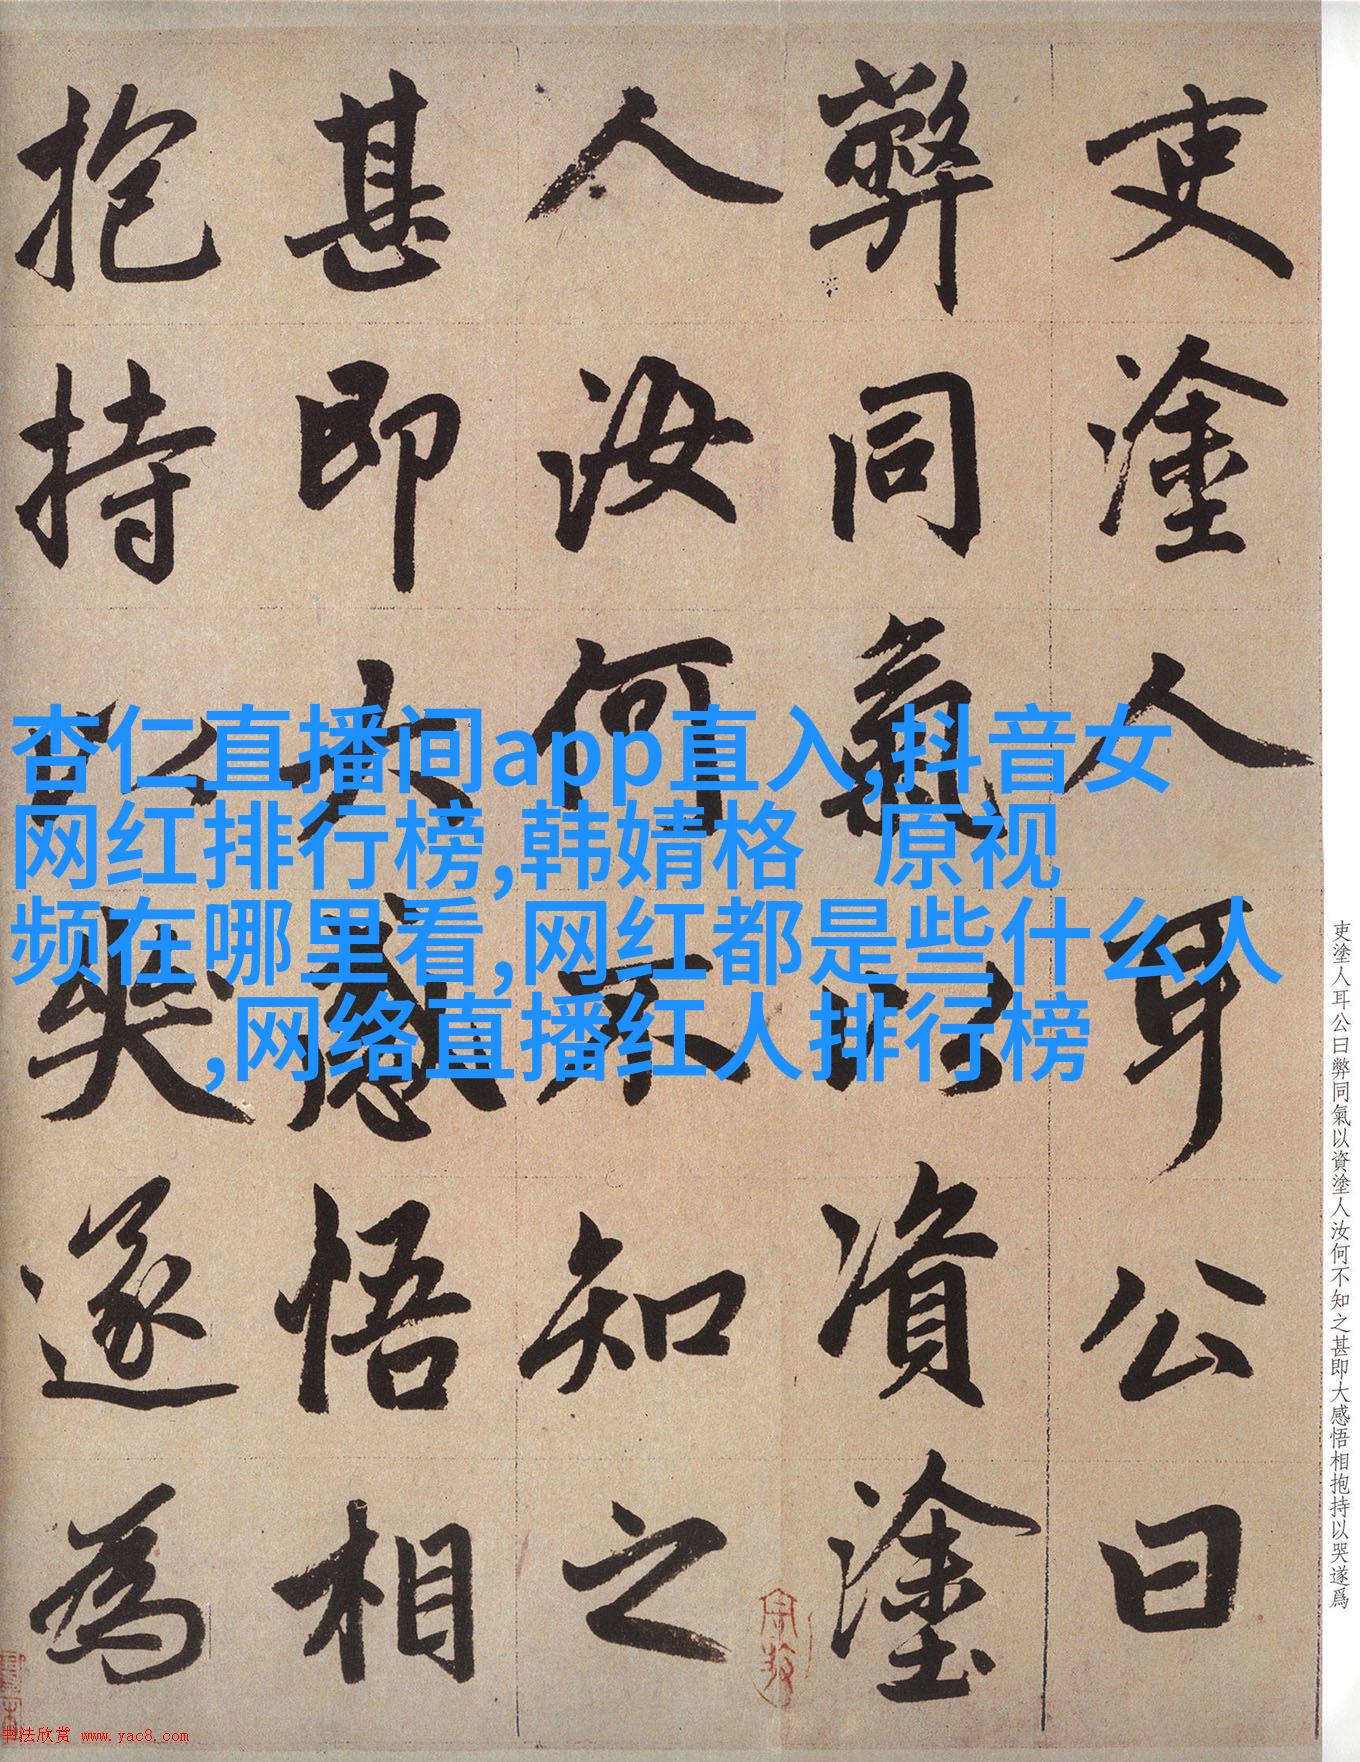 吏塗人耳公曰
弊同氣以資塗
人汝何不知之
甚即大感悟相
抱持以哭遂為
杏仁直播间app直入,抖音女
网红排行榜,韩婧格 原视
频在哪里看,网红都是些什么人
,网络直播红人排行榜
吏塗人耳公曰弊同氣以資塗人汝何不知之甚即大感悟相抱持以哭遂爲
书法欣赏 www.yac8.com